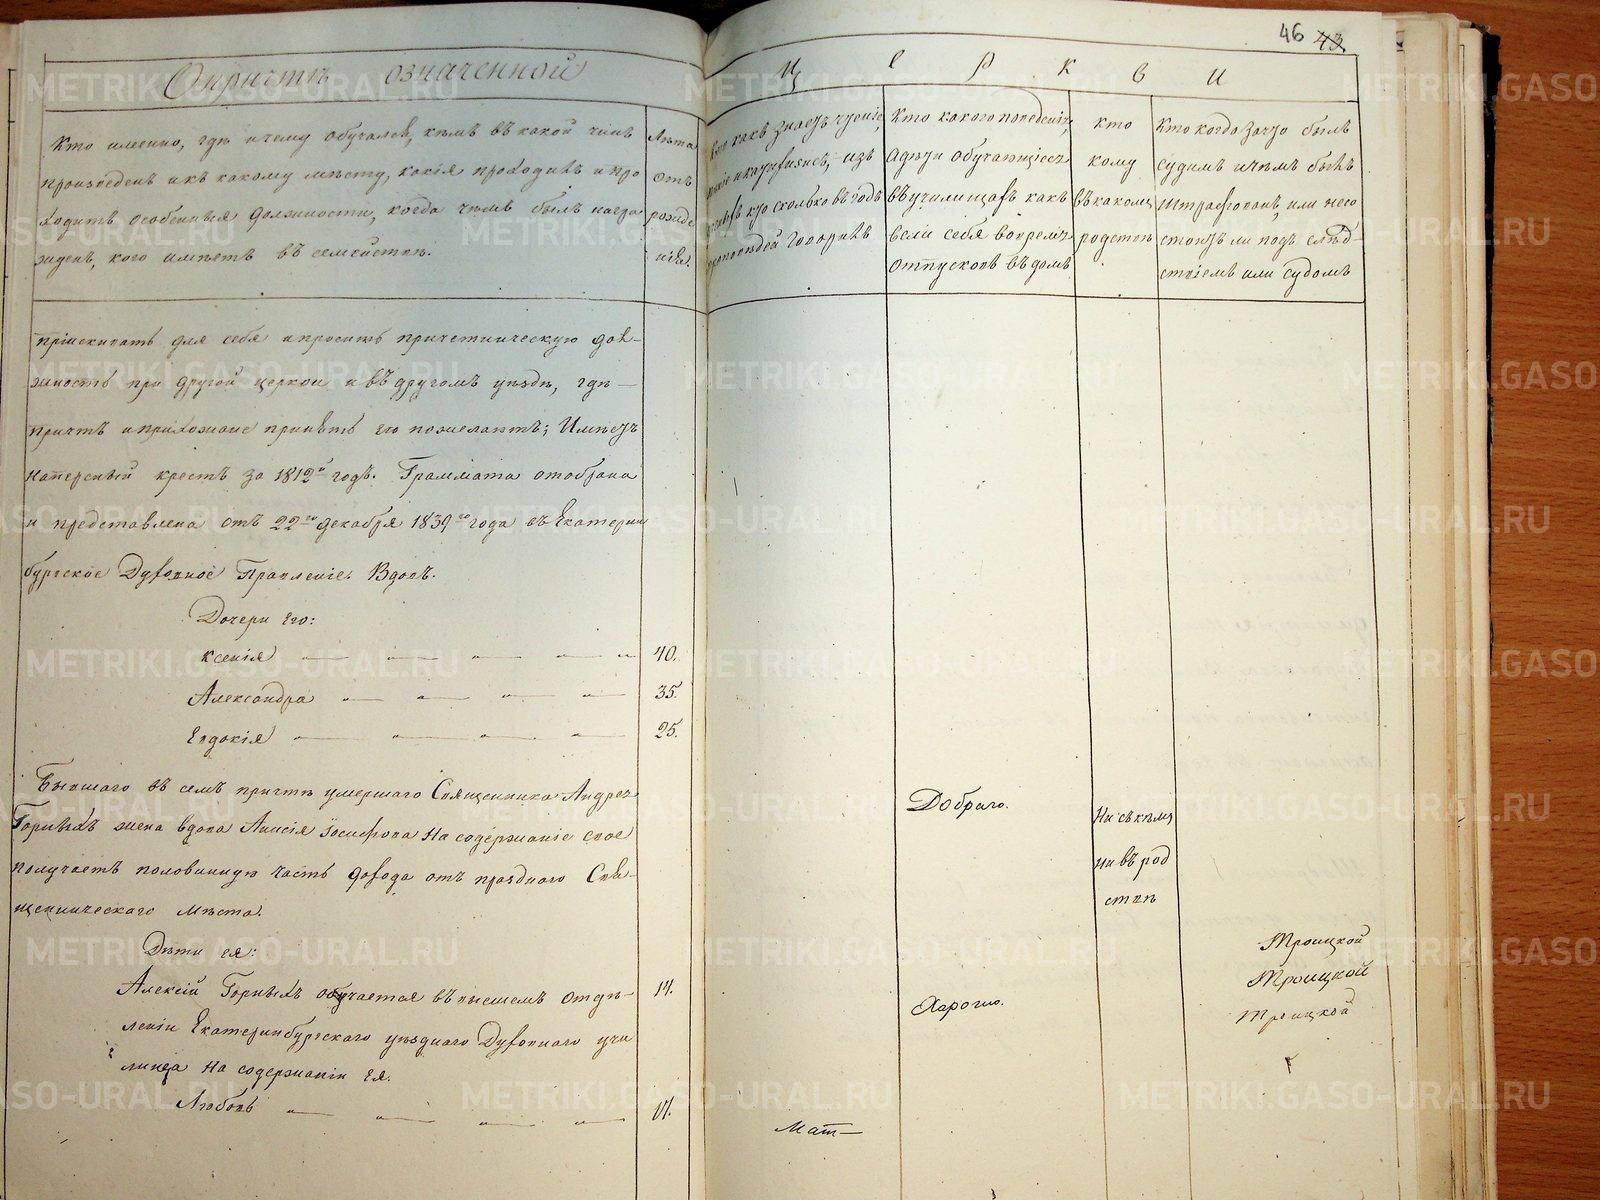 46 43
О причтѣ означенной
Ц е р к в и
Кто именно, гдѣ и чему обучался, кѣмъ въ какой чинъ
произведенъ и къ какому мѣсту, какія проходилъ и про
ходитъ особенныя должности, когда чѣмъ былъ награ
жденъ, кого имѣетъ въ семействѣ.
Лѣта
отъ
рожде
нія.
какъ знаетъ чтеніе,
пѣніе и катихизисъ, изъ
кто сколько въ годъ
проповѣдей говоритъ
Кто какого поведенія,
а дѣти обучающіеся
въ училищахъ какъ
вели себя во время
отпусковъ въ домъ
кто
кому
въ какомъ
родствѣ
Кто когда за что былъ
судимъ и чѣмъ былъ
штрафованъ, или не со
стоитъ ли подъ слѣд-
ствіемъ или судомъ
пріискивать для себя и просить причетническую дол-
жность при другой церкви и въ другомъ уѣздѣ, гдѣ
причтъ и прихожане принять его пожелаютъ; Имѣетъ
наперсный крестъ за 1812й годъ. Граммата отобрана
и представлена отъ 22го декабря 1839го года въ Екатерин
бургское Духовное Правленіе. Вдовъ.
Дочери его:
Ксенія — " — " — " — " 40.
Александра — " — " — " — 35.
Евдокія — " — " — " — 25.
Бывшаго въ семъ причтѣ умершаго Священника Андрея
Горныхъ жена вдова Анисія Іосифова на содержаніе свое
получаетъ половинную часть дохода отъ празднаго Свя-
щенническаго мѣста.
Добраго.
Ни съ кѣмъ
ни въ род
ствѣ
Дѣти ея:
Алексій Горныхъ обучается въ высшемъ отдѣ- 14.
леніи Екатеринбургскаго уѣзднаго Духовнаго учи
лища на содержаніи ея.
Хорошо.
Любовь " — " — " — " — 17.
Троицкой
Троицкой
Троицкой
Мат—
METRIKI.GASO-URAL.RU